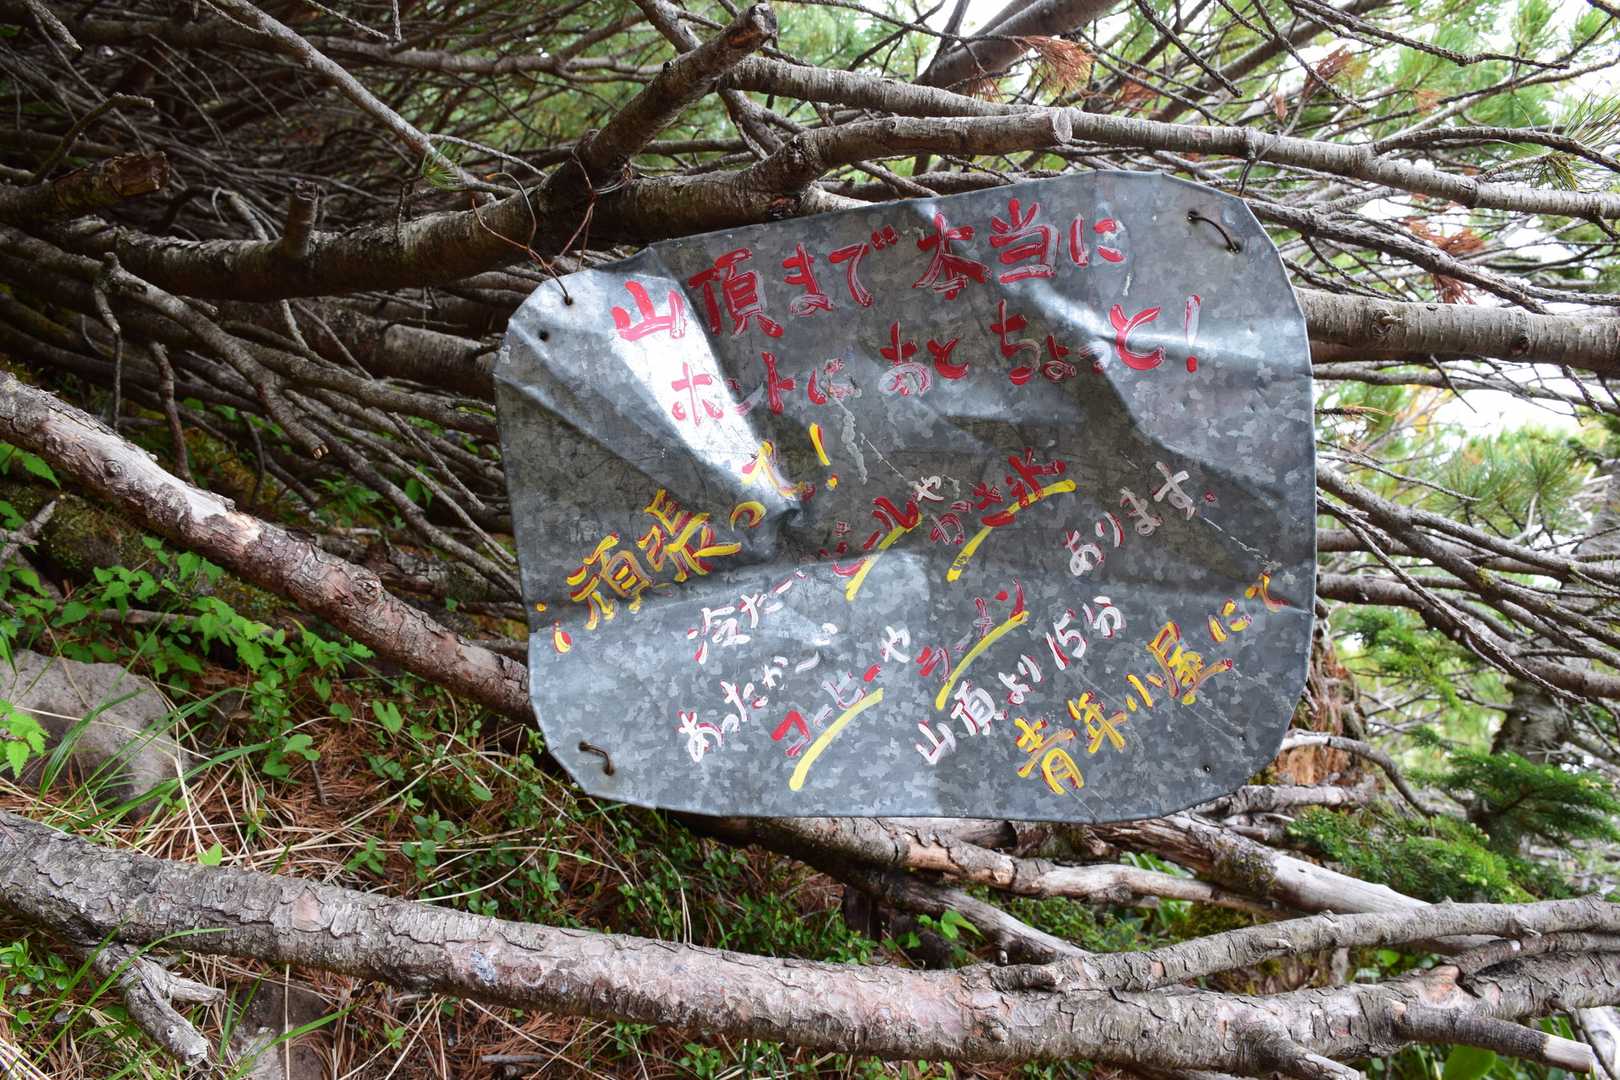 山頂まで本当に
ホントにあとちょっと!
¡頑張って!
冷た〜いビールやかき氷あります。
あったか〜いコーヒーやラーメン
山頂より15分
青年小屋にて